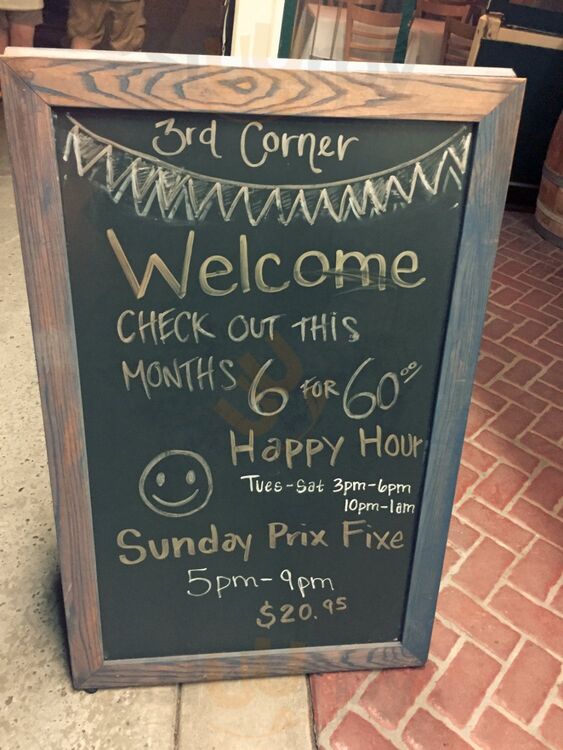 3rd Corner
Welcome
CHECK OUT THIS
MONTHS 6 FOR 60.00
Happy Hour
Tues-Sat 3pm-6pm
10pm-1am
Sunday Prix Fixe
5pm-9pm
$20.95